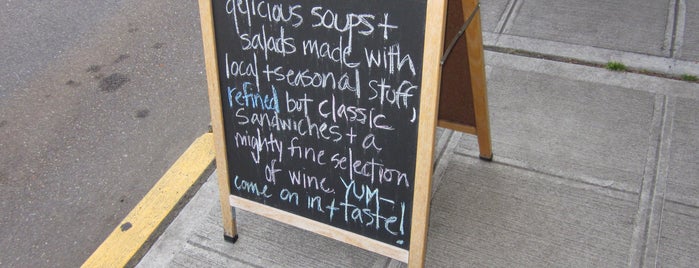 delicious soups +
salads made with
local + seasonal stuff,
refined but classic
sandwiches + a
mighty fine selection
of wine. YUM-
come on in + taste!